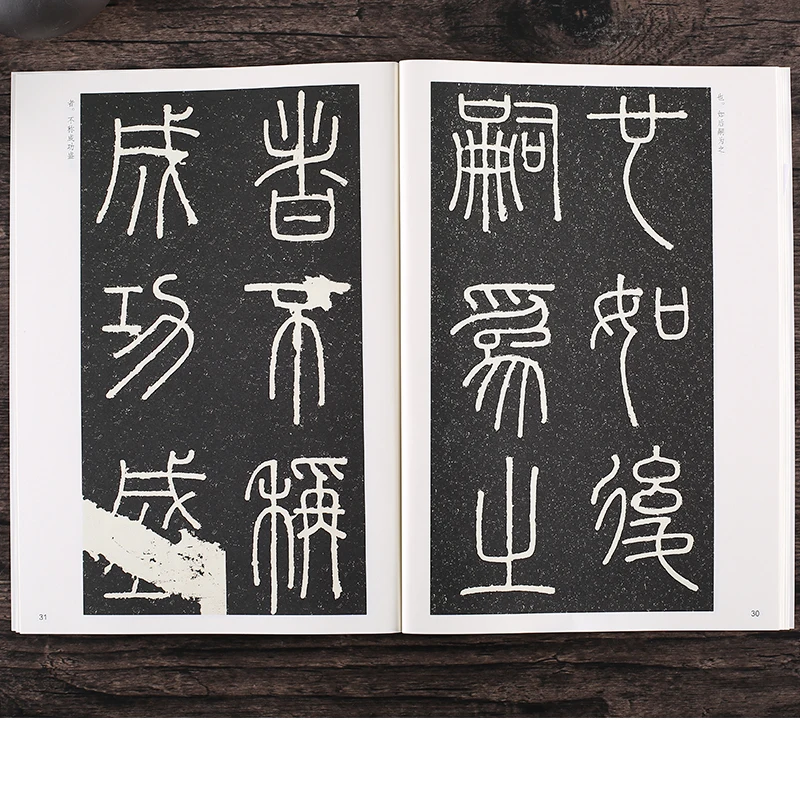 也。如后嗣为之
也如後
嗣為之
30
者不稱
成功盛
者，不称成功盛
31